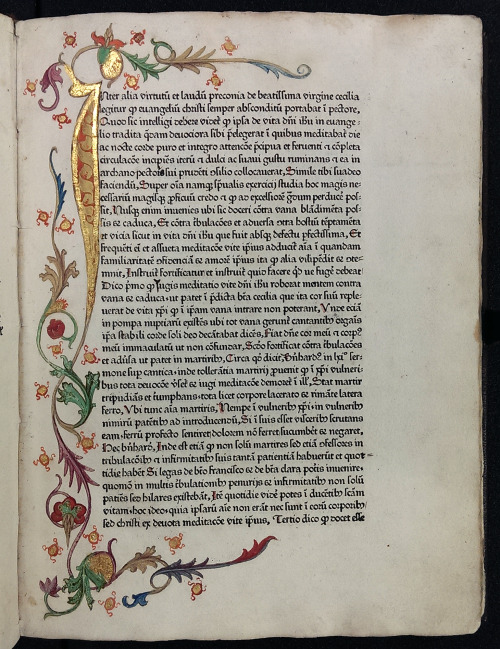 INter alia virtutū et laudū preconia de beatissima virgine cecilia
legitur ꝙ euangeliū christi semper absconditū portabat ī pectore,
Quod sic intelligi debere videt᷑ ꝙ ipsa de vita dn̄i ih̄u in euange-
lio tradita q̄dam deuociora sibi p̄elegerat ī quibus meditabat᷑ die
ac nocte corde puro et integro attencōe p̄cipua et feruenti et cōpleta
circulacōe incipiēs iterū ⁊ dulci ac suaui gustu ruminans ⁊ ea in
archano pectoris sui prudēti ꝯsilio collocauerat, Simile tibi suadeo
faciendū, Super oīa namꝙ sp̄ualis exercicij studia hoc magis ne-
cessariū magisꝙ ꝓficuū credo ⁊ ꝙ ad excelsiorē gradum perducē̄ pos-
sit, Nusꝙ̄ enim inuenies ubi sic doceri cōtra vana blādimēta pos-
sis ⁊ caduca, Et cōtra t̄bulacōes et aduersa cōtra hostiū tēptamēta
et vicia sicut in vita dn̄i ih̄u que fuit absꝙ defectu ꝑfectissima, Et
frequēti em̄ et assueta meditacōe vite ip̄ius adducit᷑ aīa ī quandam
familiaritatē ꝯfidenciā ⁊ amorē ip̄ius ita ꝙ alia vilipēdit ⁊ ꝯte-
mnit, Instruit᷑ fortificatur et instruit᷑ quid facere ꝙ̄d ue fugē debeat
Dico p̄mo ꝙ iugis meditatio vite dn̄i ih̄u roborat mentem contra
vana ⁊ caduca ut patet ī p̄dicta btēa cecilia que ita cor suū reple-
uerat de vita xp̄i ꝙ ī ip̄am vana intrare non poterant, Vnde etiā
in pompa nuptiarū existēs ubi tot vana gerunt᷑ cantantibꝰ orgāīs
ip̄a stabili corde soli deo decātabat dicēs, Fiat dn̄e cor meū ⁊ corpꝰ
meū immaculatū ut non cōfundar, Scd̄o fortificat cōtra t̄bulacōes
et aduīsa ut patet in martiribꝫ, Circa qd̄ dicit b̄nhardꝰ in lxiº ser-
mone sup cantica, inde tollerātia martirij ꝓuenit ꝙ ī xp̄i vulneri
bus tota deuocōe v̄set᷑ ⁊ iugi meditacōe demoret᷑ ī ill᷑, Stat martir
tripudiās et tumphans, tota licet corpore lacerato ⁊ rimāte latera
ferro, Vbi tunc aīa martiris, Nempe ī vulneribꝫ xp̄i, in vulneribꝫ
nimirū patētibꝫ ad introducendū, Si ī suis esset visceribꝫ scrutans
eam, ferrū profecto sentiret dolorem nō ferret sucumbēt ⁊ negaret,
Hec b̄nharð, Inde est etiā ꝙ non solū martires sed etiā cōfessores in
tribulacōibꝫ ⁊ infirmitatibꝫ suis tantā patientiā habuerūt et quot-
tidie habēt Si legas de btō francisco ⁊ de btā dara potis inuenire,
quomō in multis t̄bulationibꝫ penurijs ⁊ infirmitatibꝫ non solū
patiētes sed hilares existebāt, Itē quotidie vidē potes ī ducētibꝫ scām
vitam, hoc ideo, quia ipsarū aīe non erāt nec sunt ī eorū corporibꝫ
sed christi ex deuota meditacōe vite ip̄ius, Tertio dico ꝙ docet esse